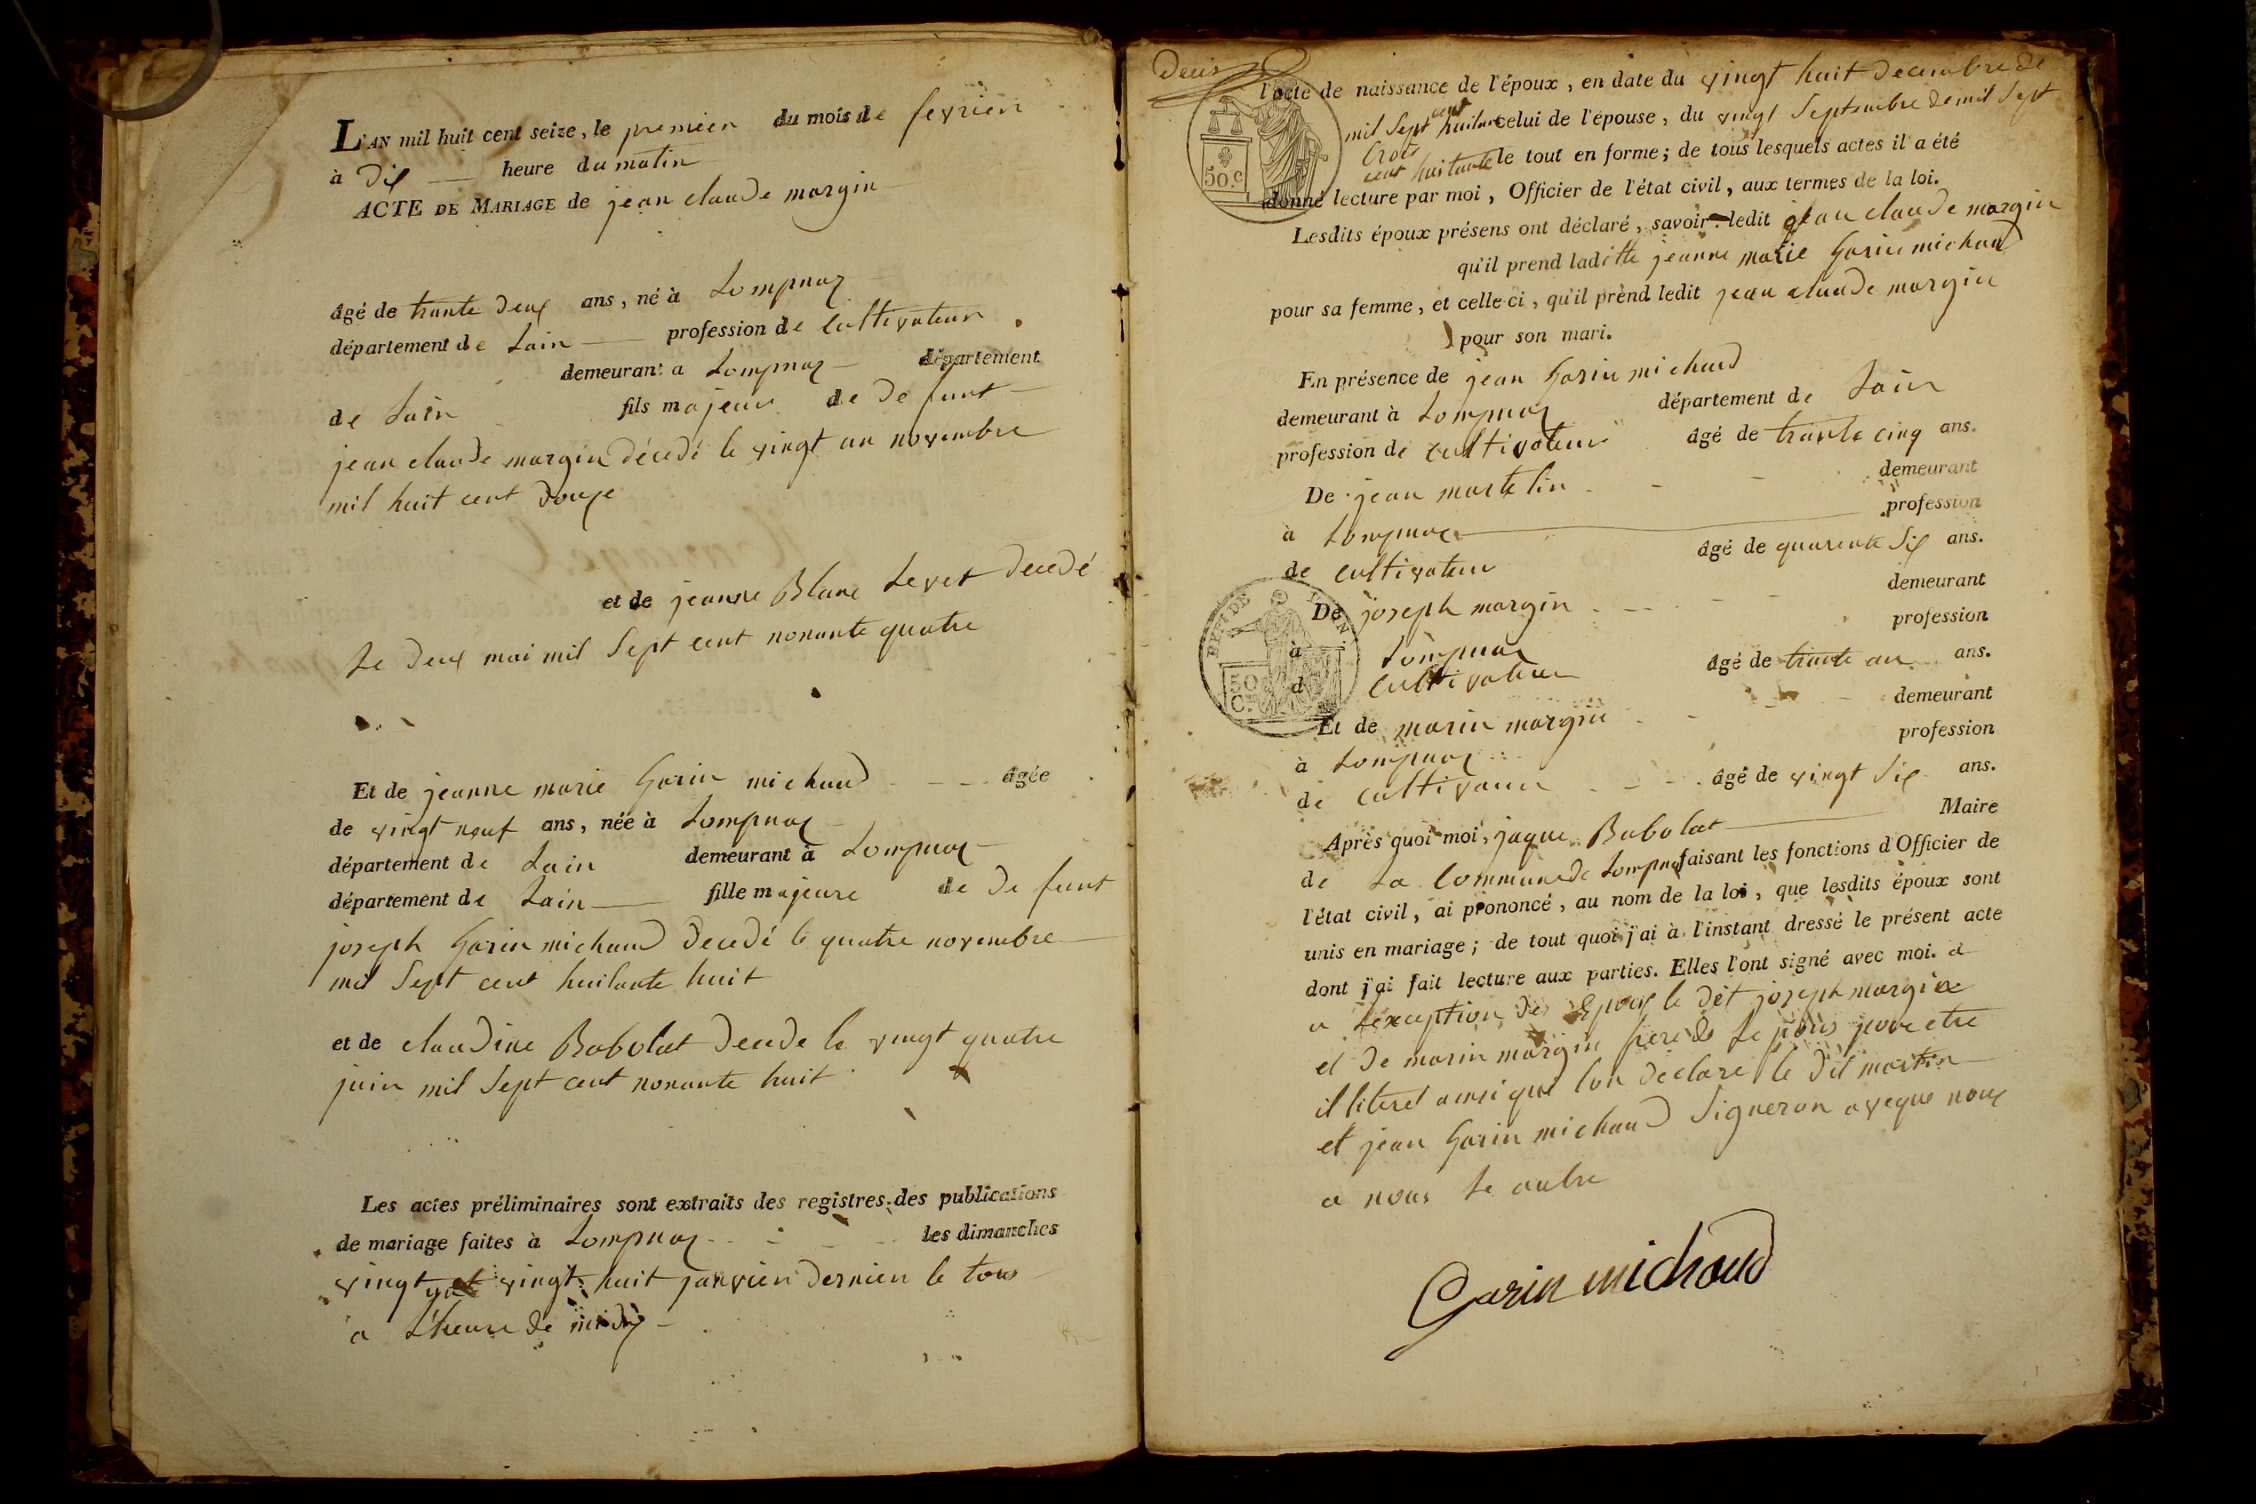 L'AN mil huit cent seize, le premier du mois de fevrier
à dix heure du matin
ACTE DE MARIAGE de jean claude margin
âgé de trante deux ans, né à Lompnaz
département de Lain profession de cultivateur
demeurant a Lompnaz département
de Lain fils majeur de defunt
jean claude margin décédé le vingt un novembre
mil huit cent douze
et de jeanne Blanc Levet decedé
Le deux mai mil Sept cent nonante quatre
Et de jeanne marie Garin michaud âgée
de vingt neuf ans, née à Lompnaz
département de Lain demeurant à Lompnaz
département de Lain fille majeure de defunt
joseph Garin michaud decedé le quatre novembre
mil Sept cent huitante huit
et de claudine Babolat decede le vingt quatre
juin mil Sept cent nonante huit
Les actes préliminaires sont extraits des registres des publications
de mariage faites à Lompnaz les dimanches
vingt et vingt huit janvier dernier le tous
a Lheure de midy
l'acte de naissance de l'époux, en date du vingt huit decembre de
mil Sept cent huitante celui de l'épouse, du vingt Septembre de mil Sept
trois
cent huitante le tout en forme; de tous lesquels actes il a été
donné lecture par moi, Officier de l'état civil, aux termes de la loi.
Lesdits époux présens ont déclaré, savoir: ledit jean claude margin
qu'il prend laditte jeanne marie Garin michaud
pour sa femme, et celle-ci, qu'il prend ledit jean claude margin
pour son mari.
En présence de jean Garin michaud
demeurant à Lompnaz département de Lain
profession de cultivateur âgé de trante cinq ans.
De jean martelin demeurant
à Lompnaz profession
de cultivateur âgé de quarente Six ans.
De joseph margin demeurant
à Lompnaz profession
d cultivateur âgé de trante un ans.
Et de marin margin demeurant
à Lompnaz profession
de cultivateur âgé de vingt Six ans.
Après quoi moi, jaque Babolat Maire
de La Commune de Lompnaz faisant les fonctions d'Officier de
l'état civil, ai prononcé, au nom de la loi, que lesdits époux sont
unis en mariage; de tout quoi j'ai à l'instant dressé le présent acte
dont j'ai fait lecture aux parties. Elles l'ont signé avec moi. a
a Lexception des Epoux le dit joseph margin
et de marin margin frere de Lepoux pour etre
illiteret ainsi que lon déclare le dit martin
et jean Garin michaud Signeron aveque nous
a nous Le autre
Garin michaud
50.c
50 C.